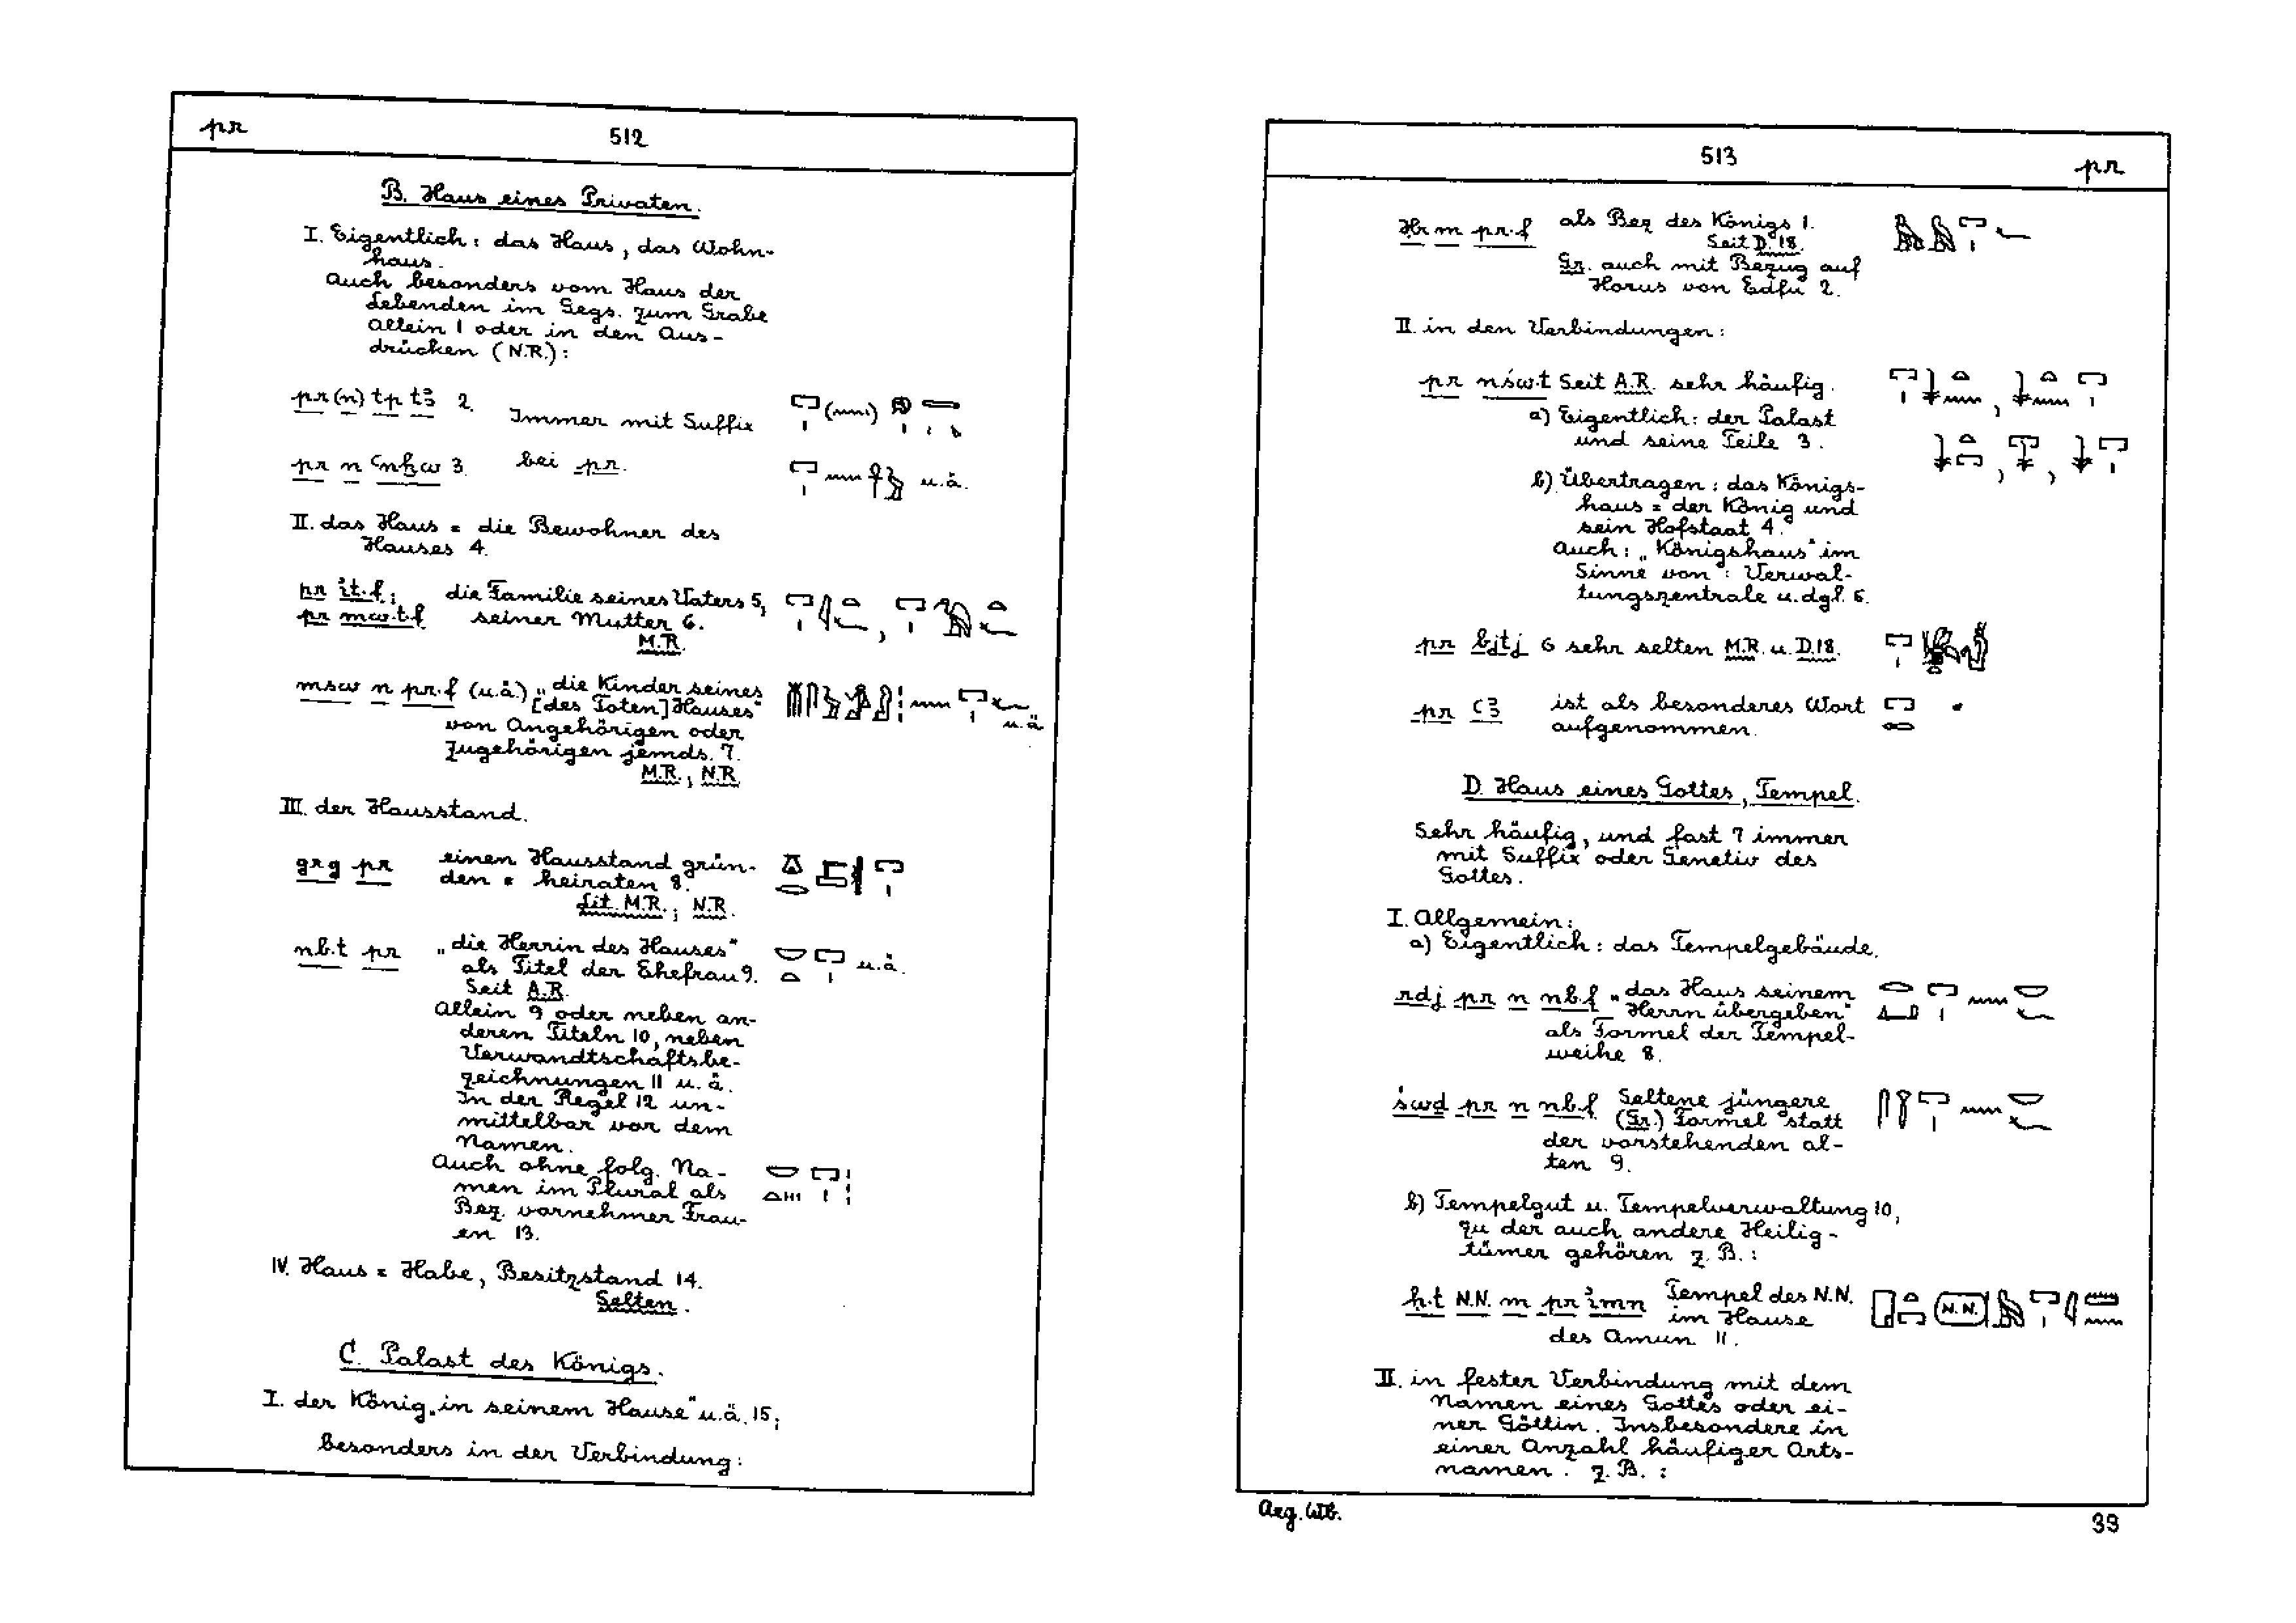 pr 512
B. Haus eines Privaten.
I. Eigentlich: das Haus, das Wohn-
haus.
Auch besonders vom Haus der
Lebenden im Gegs. zum Grabe
allein 1 oder in den Aus-
drücken (N.R.):
pr (n) tp tꜣ 2. Immer mit Suffix
pr n ꜥnḫw 3. bei pr. u.ä.
II. das Haus = die Bewohner des
Hauses 4.
pr it.f; die Familie seines Vaters 5,
pr mw.t.f seiner Mutter 6.
M.R.
msw n pr.f (u.ä.) „die Kinder seines
[des Toten] Hauses“ u.ä
von Angehörigen oder
Zugehörigen jemds. 7.
M.R., N.R.
III. der Hausstand.
grg pr einen Hausstand grün-
den = heiraten 8.
Lit. M.R.; N.R.
nb.t pr „die Herrin des Hauses“
als Titel der Ehefrau 9. u.ä.
Seit A.R.
Allein 9 oder neben an-
deren Titeln 10, neben
Verwandtschaftsbe-
zeichnungen 11 u.ä.
In der Regel 12 un-
mittelbar vor dem
Namen.
Auch ohne folg. Na-
men im Plural als
Bez. vornehmer Frau-
en 13.
IV. Haus = Habe, Besitzstand 14.
Selten.
C. Palast des Königs.
I. der König „in seinem Hause“ u.ä. 15;
besonders in der Verbindung:
513 pr
Ḥr m pr.f als Bez des Königs 1.
Seit D. 18.
Gr. auch mit Bezug auf
Horus von Edfu 2.
II. in den Verbindungen:
pr nśw.t Seit A.R. sehr häufig.
a) Eigentlich: der Palast
und seine Teile 3.
b) Übertragen: das Königs-
haus = der König und
sein Hofstaat 4.
Auch: „Königshaus“ im
Sinne von: Verwal-
tungszentrale u.dgl. 5.
pr bjtj 6 sehr selten M.R. u. D.18.
pr ꜥꜣ ist als besonderes Wort
aufgenommen.
D. Haus eines Gottes, Tempel.
Sehr häufig, und fast 7 immer
mit Suffix oder Genetiv des
Gottes.
I. Allgemein:
a) Eigentlich: das Tempelgebäude.
rdj pr n nb.f „das Haus seinem
Herrn übergeben“
als Formel der Tempel-
weihe 8.
św​d pr n nb.f Seltene jüngere
(Gr.) Formel statt
der vorstehenden al-
ten 9.
b) Tempelgut u. Tempelverwaltung 10,
zu der auch andere Heilig-
tümer gehören z. B.:
ḥ.t N.N. m pr imn Tempel des N.N. N.N.
im Hause
des Amun 11.
II. in fester Verbindung mit dem
Namen eines Gottes oder ei-
ner Göttin. Insbesondere in
einer Anzahl häufiger Orts-
namen. z. B.:
Aeg. Wb. 33